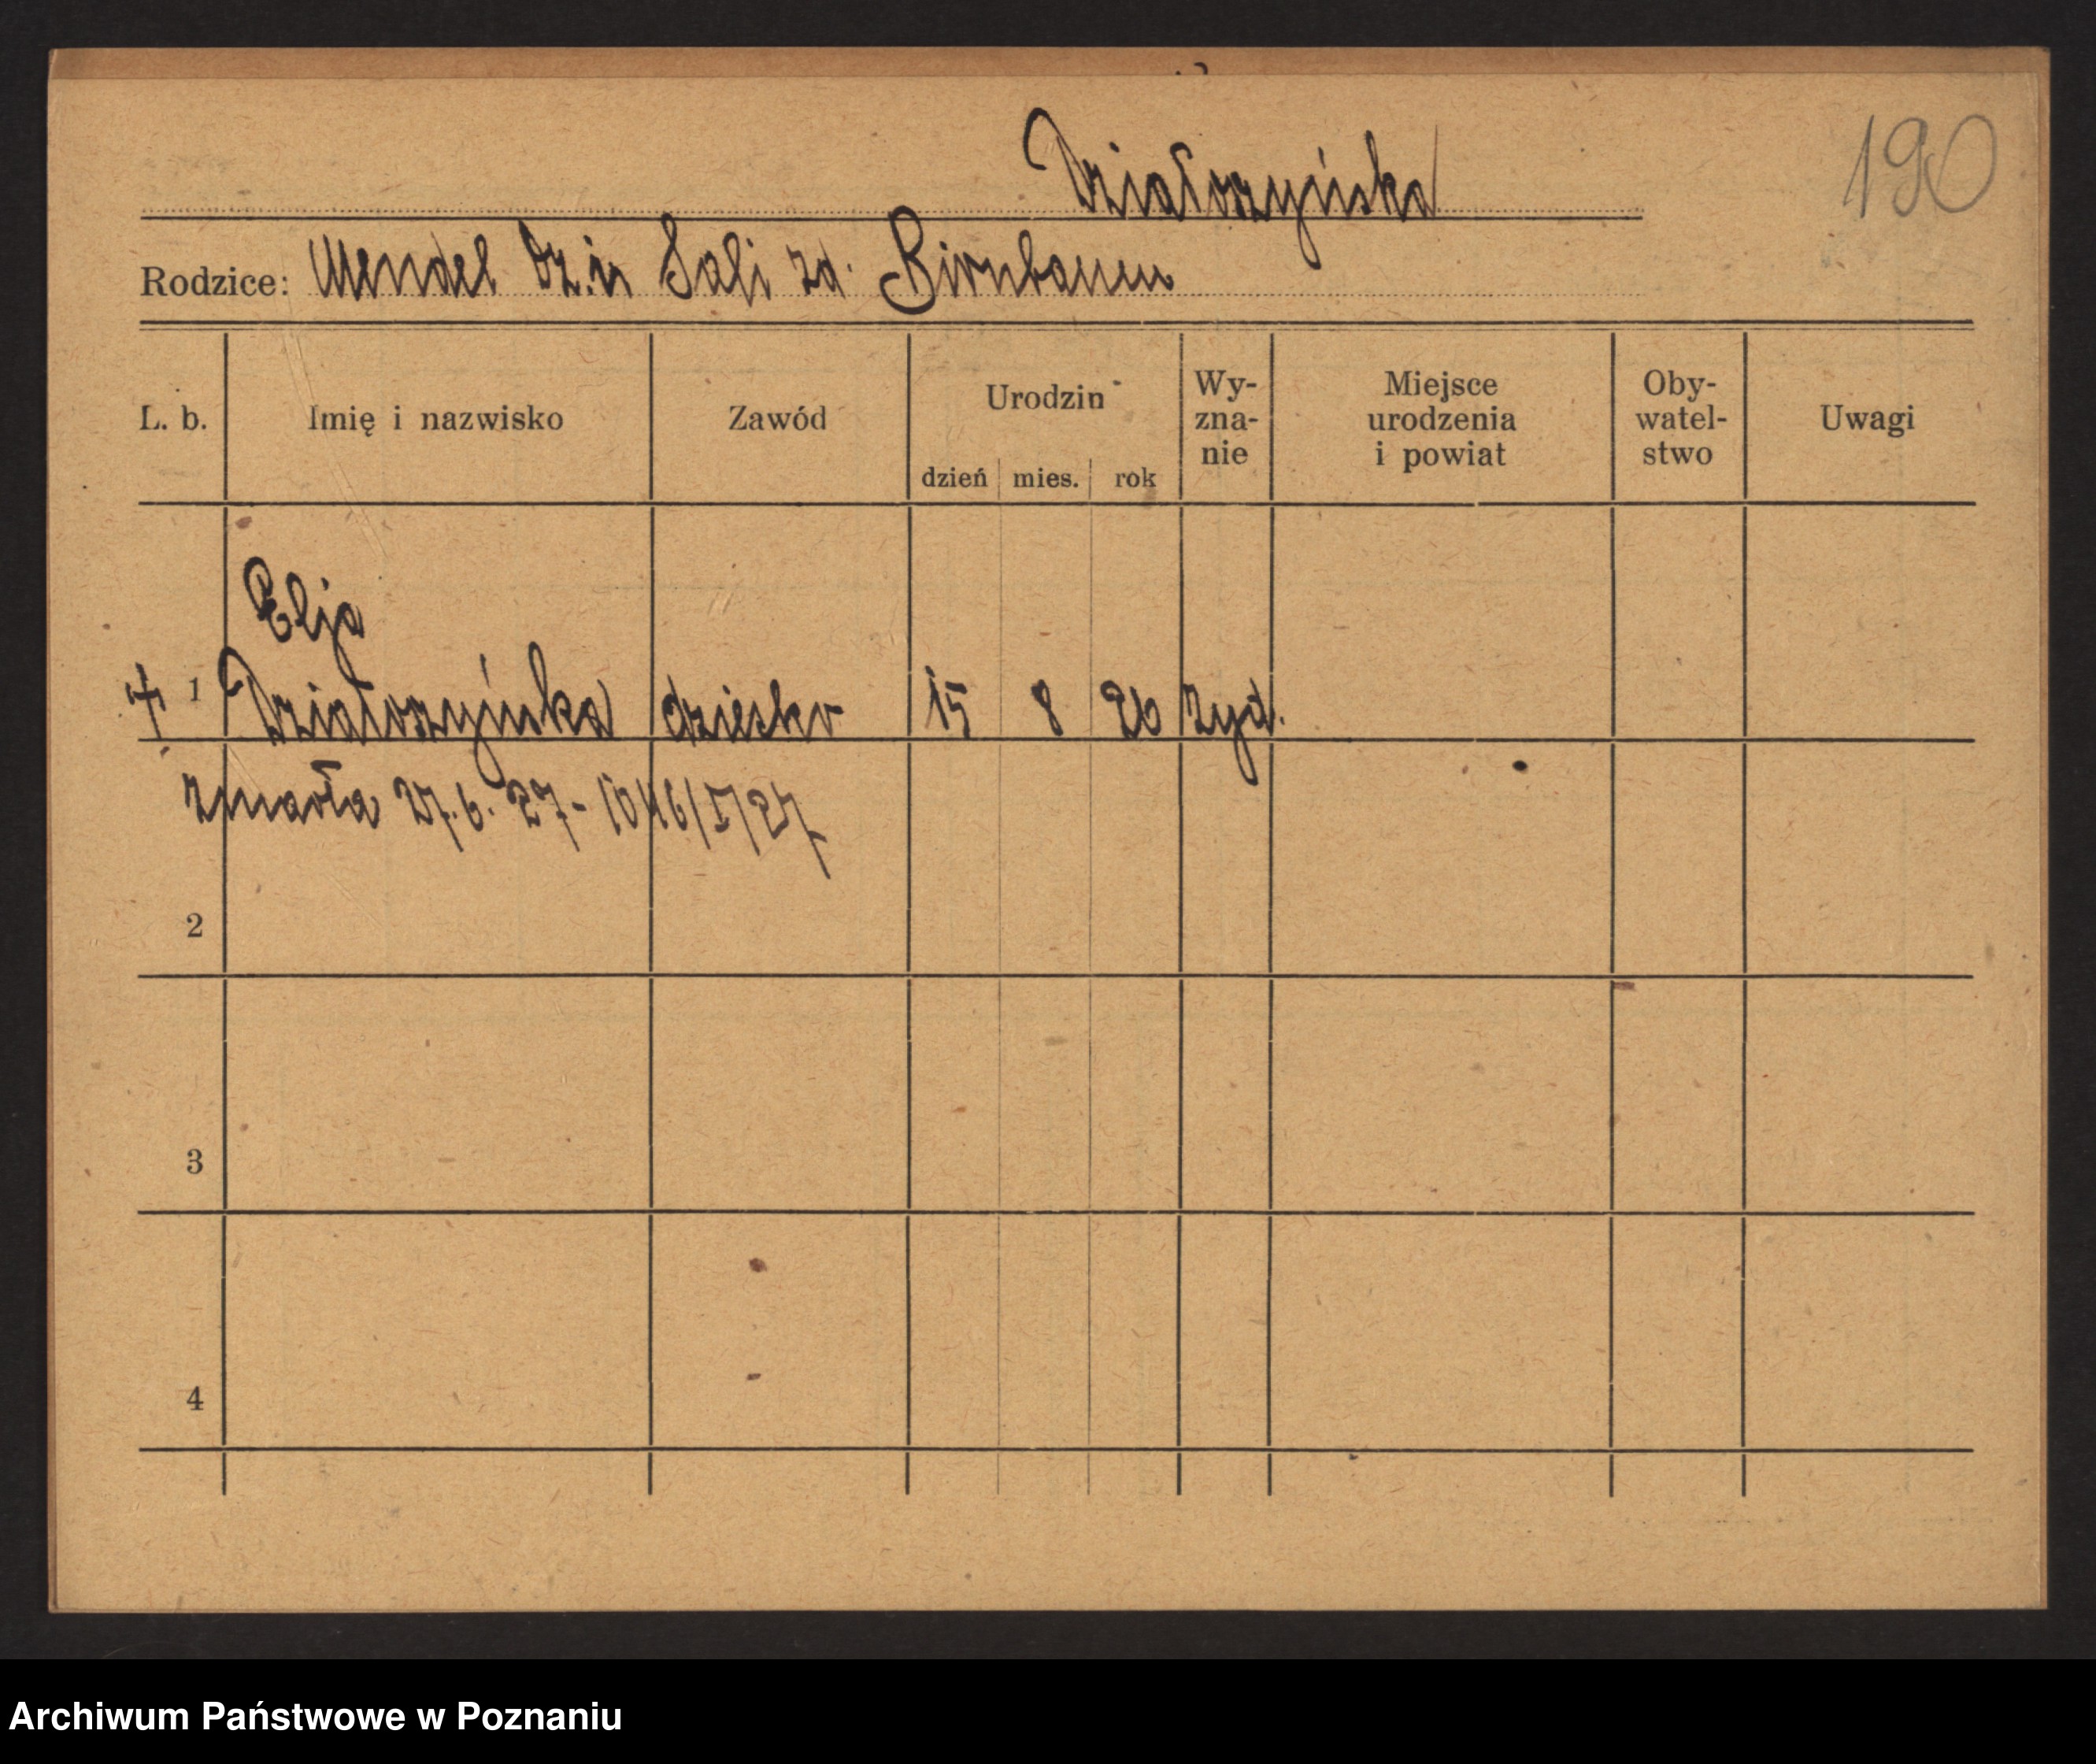 Działoszyńska
190
Rodzice: Mendel Dz. i Sali zd. Birnbaum
L. b. Imię i nazwisko Zawód Urodzin dzień mies. rok Wy-zna-nie Miejsce urodzenia i powiat Oby-watel-stwo Uwagi
Elja
1 Działoszyńska dziecko 15 8 26 żyd.
zmarła 27.6.27 - 1046/I/27
2
3
4
Archiwum Państwowe w Poznaniu